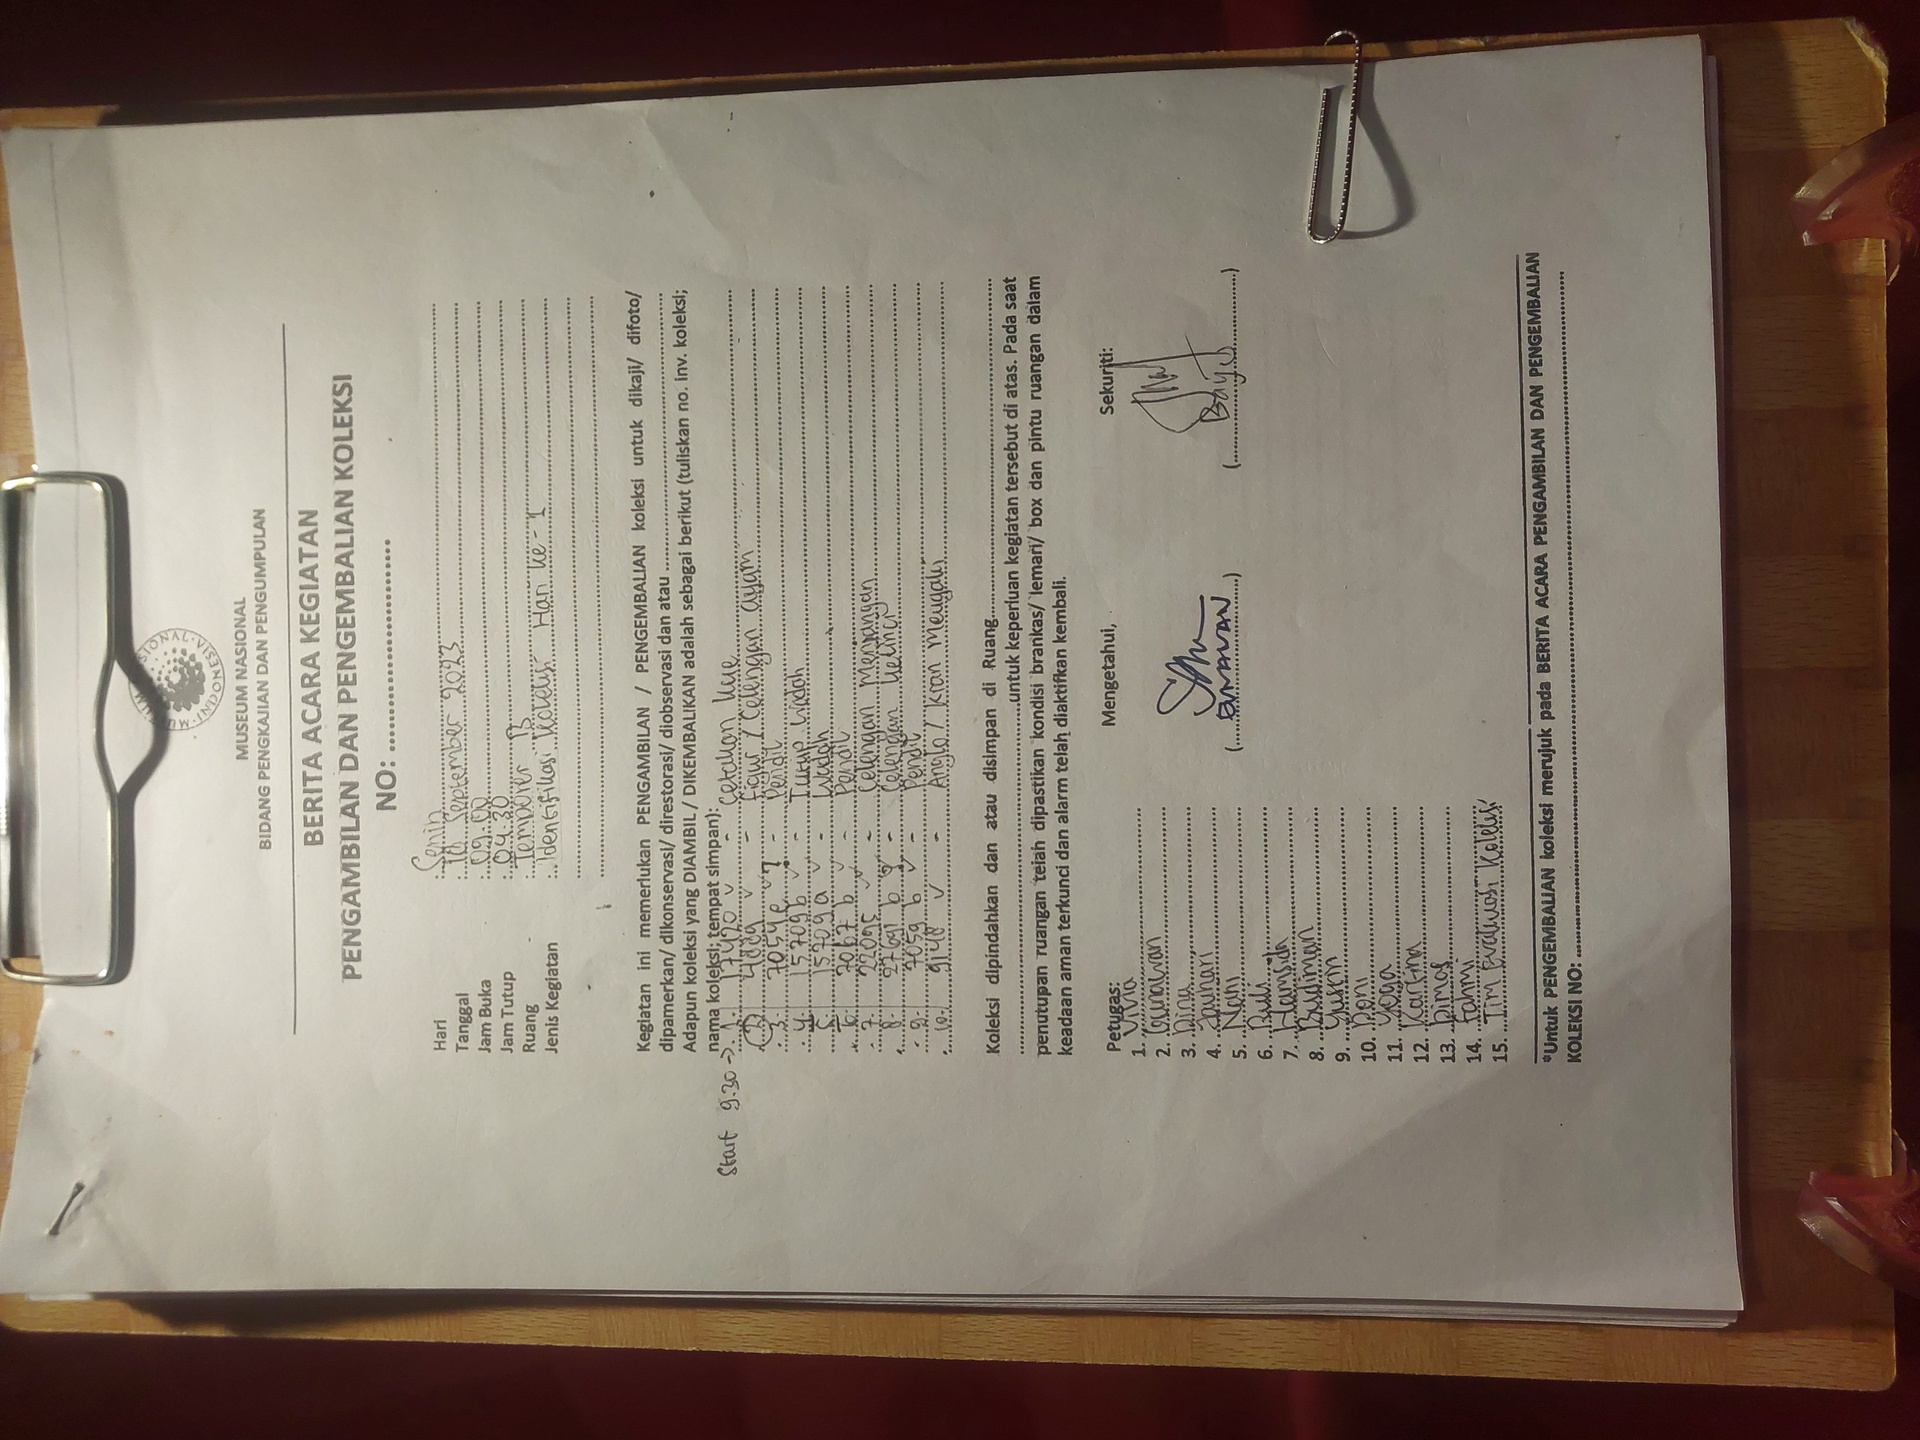 MUSEUM NASIONAL
BIDANG PENGKAJIAN DAN PENGUMPULAN
BERITA ACARA KEGIATAN
PENGAMBILAN DAN PENGEMBALIAN KOLEKSI
NO: ..............................
Hari : Senin
Tanggal : September 2023
Jam Buka : 09.00
Jam Tutup : 04.30
Ruang : Temporer B
Jenis Kegiatan : Identifikasi Koleksi Hari ke-1
Kegiatan ini memerlukan PENGAMBILAN / PENGEMBALIAN koleksi untuk dikaji/ difoto/
dipamerkan/ dikonservasi/ direstorasi/ diobservasi dan atau ..............................
Adapun koleksi yang DIAMBIL / DIKEMBALIKAN adalah sebagai berikut (tuliskan no. inv. koleksi;
nama koleksi; tempat simpan):
Start 9.30 -> 1. 17420 v - Cetakan kue
2. v - Figur / Celengan ayam
3. 7054e v - Pendil
4. 15709b v - Tutup wadah
5. 15709a v - Wadah
6. 7067 b v - Pendil
7. v - Celengan Menjangan
8. - Celengan kelinci
9. 7059 b v - Pendil
10. 9148 v - Anglo / Kran Mengalir
Koleksi dipindahkan dan atau disimpan di Ruang..............................
..............................untuk keperluan kegiatan tersebut di atas. Pada saat
penutupan ruangan telah dipastikan kondisi brankas/ lemari/ box dan pintu ruangan dalam
keadaan aman terkunci dan alarm telah diaktifkan kembali.
Petugas: Mengetahui, Sekuriti:
1. Vivia
2. Gunawan
3. Dina
4. Jauhari
5. Nani
6. Ruli
7. Hamsiah
8. Budiman
9. Yusni
10. Doni
11. Yoga
12. Kartina
13. Dimas
14. Fahmi
15. Tim Evaluasi Koleksi
(Bayu)
*Untuk PENGEMBALIAN koleksi merujuk pada BERITA ACARA PENGAMBILAN DAN PENGEMBALIAN
KOLEKSI NO: ..............................